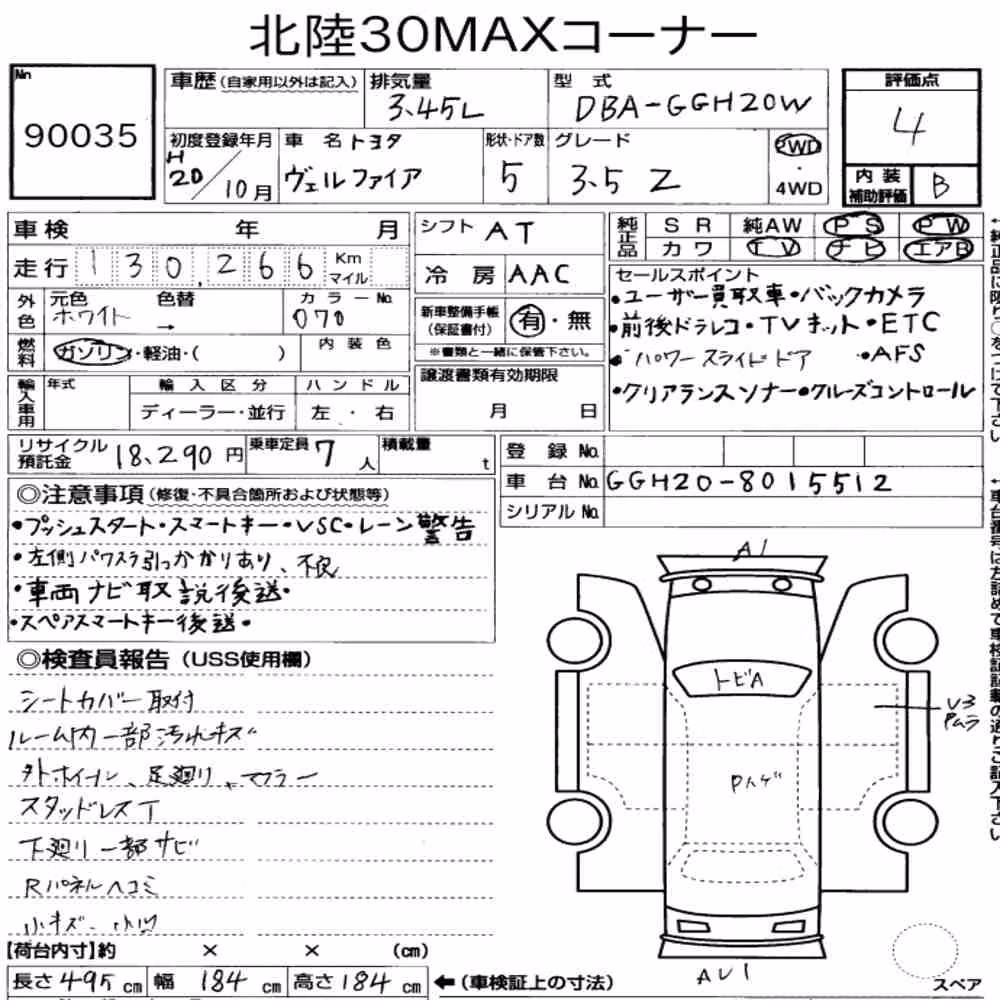 北陸30MAXコーナー
No
90035
車歴(自家用以外は記入)
排気量
3.45L
型 式
DBA-GGH20W
評価点
4
初度登録年月
H20/10月
車 名 トヨタ
ヴェルファイア
形状・ドア数
5
グレード
3.5 Z
2WD
4WD
内装補助評価 B
車検 年 月
走行 130,266 Km マイル
シフト AT
冷房 AAC
純正品
SR 純AW PS PW
カワ TV ナビ エアB
外色
元色 ホワイト
色替 →
カラーNo.
070
燃料
ガソリン・軽油・( )
内装色
新車整備手帳
(保証書付)
有・無
※書類と一緒に保管下さい。
セールスポイント
・ユーザー買取車・バックカメラ
・前後ドラレコ・TVキット・ETC
・パワースライドドア ・AFS
・クリアランスソナー・クルーズコントロール
輸入車用
年式
輸入区分
ディーラー・並行
ハンドル
左・右
譲渡書類有効期限
月 日
リサイクル預託金 18,290円
乗車定員 7人
積載量 t
登録No.
車台No. GGH20-8015512
シリアルNo.
◎注意事項(修復・不具合箇所および状態等)
・プッシュスタート・スマートキー・VSC・レーン警告
・左側パワスラ引っかかりあり、不良
・車両ナビ取説後送・
・スペアスマートキー後送・
◎検査員報告(USS使用欄)
シートカバー取付
ルーム内一部汚れキズ
外ホイール、足廻り、マフラー
スタッドレスT
下廻り一部サビ
Rパネルヘコミ
小キズ、小凹
A1
トビA
U3
Pムラ
Pハゲ
AU1
スペア
【荷台内寸】約 × × (cm)
長さ495cm 幅 184cm 高さ184cm
←(車検証上の寸法)